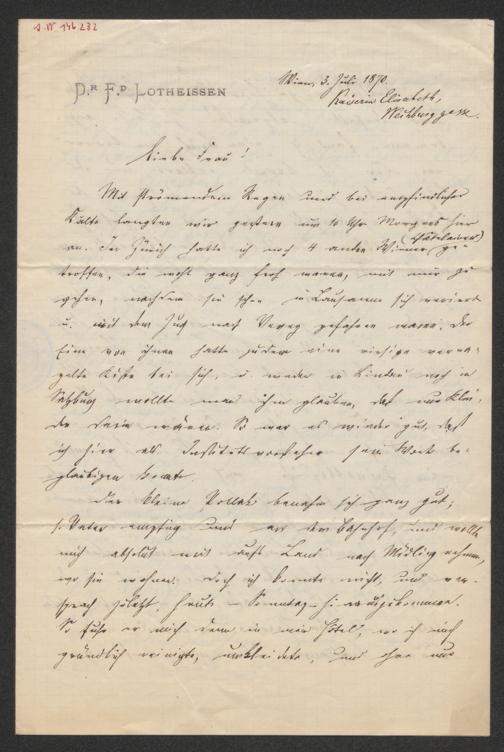 J.N 146.232
DR. FD. LOTHEISSEN
Wien, 3. Juli 1870.
Kaiserin Elisabeth,
Weihburggasse.
Liebe Frau!
Mit strömendem Regen und bei empfindlicher
Kälte langten wir gestern um 10 Uhr Morgens hier
an. In Zürich hatte ich noch 4 andre Wiener ge-
troffen, die wohl ganz froh waren, mit mir zu
gehen, nachdem sie schon in Lausanne sich
u. mit dem Zug nach Vevey gefahren waren. Der
Eine von ihnen hatte zudem eine riesige verna-
gelte Kiste bei sich, u. weder in Lindau noch in
Salzburg wollte man ihm glauben, daß nur Klei-
der darin wären. So war es wieder gut, daß
ich hier als Institutsvorsteher sein Wort be-
glaubigen konnte.
Der kleine Pollak benahm sich ganz gut;
s. Vater empfing uns an der Bahnhof, und wollte
mich absolut mit aufs Land nach Mödling nehmen,
wo sie wohnen. Doch ich konnte nicht, und ver-
sprach zuletzt, heute – Sonntag – hinauszukommen.
So fuhr er mich denn in mein Hôtel, wo ich mich
gründlich reinigte, umkleidete, und ohne nur